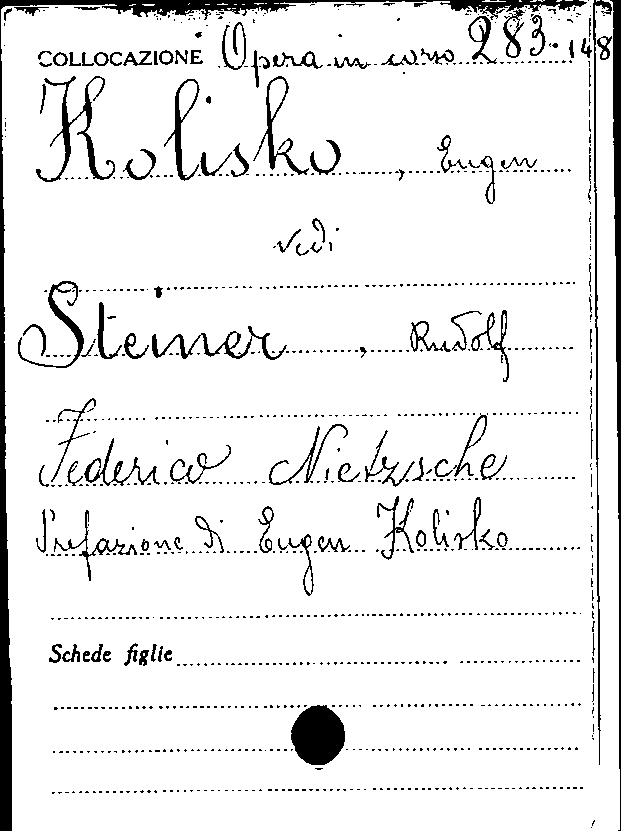 COLLOCAZIONE Opera in corso 283.148
Kolisko, Eugen
vedi
Steiner, Rudolf
Federico Nietzsche
Prefazione di Eugen Kolisko
Schede figlie